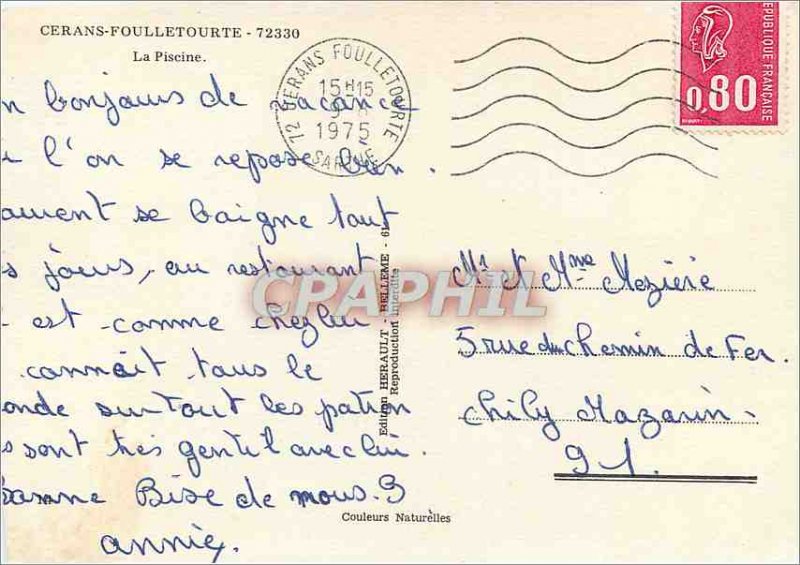 CERANS-FOULLETOURTE - 72330
La Piscine.
n bonjours de vacance
l'on se repose bien.
ament se baigne tout
s jours, au restaurant
est comme chez lui
connait tous le
onde surtout les patron
s sont très gentil avec lui.
Bise de nous. 3
annie.
72 CERANS FOULLETOURTE
15H15
9-8
1975
SARTHE
REPUBLIQUE FRANÇAISE
0,80
Edition HERAULT - BELLEME - 61
Reproduction interdite
CPAPHIL
Mr & Mme Mezière
5 rue du Chemin de Fer.
Chily Mazarin.
91.
Couleurs Naturelles